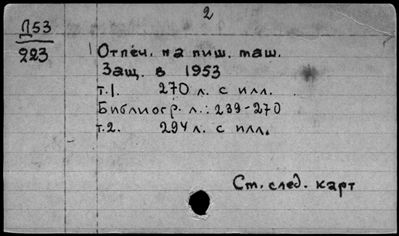 2
Д53
223
Отпеч. на пиш. маш.
Защ. в 1953
т.1. 270 л. с илл.
Библиогр. л.: 239-270
т.2. 294 л. с илл.
Ст. след. карт